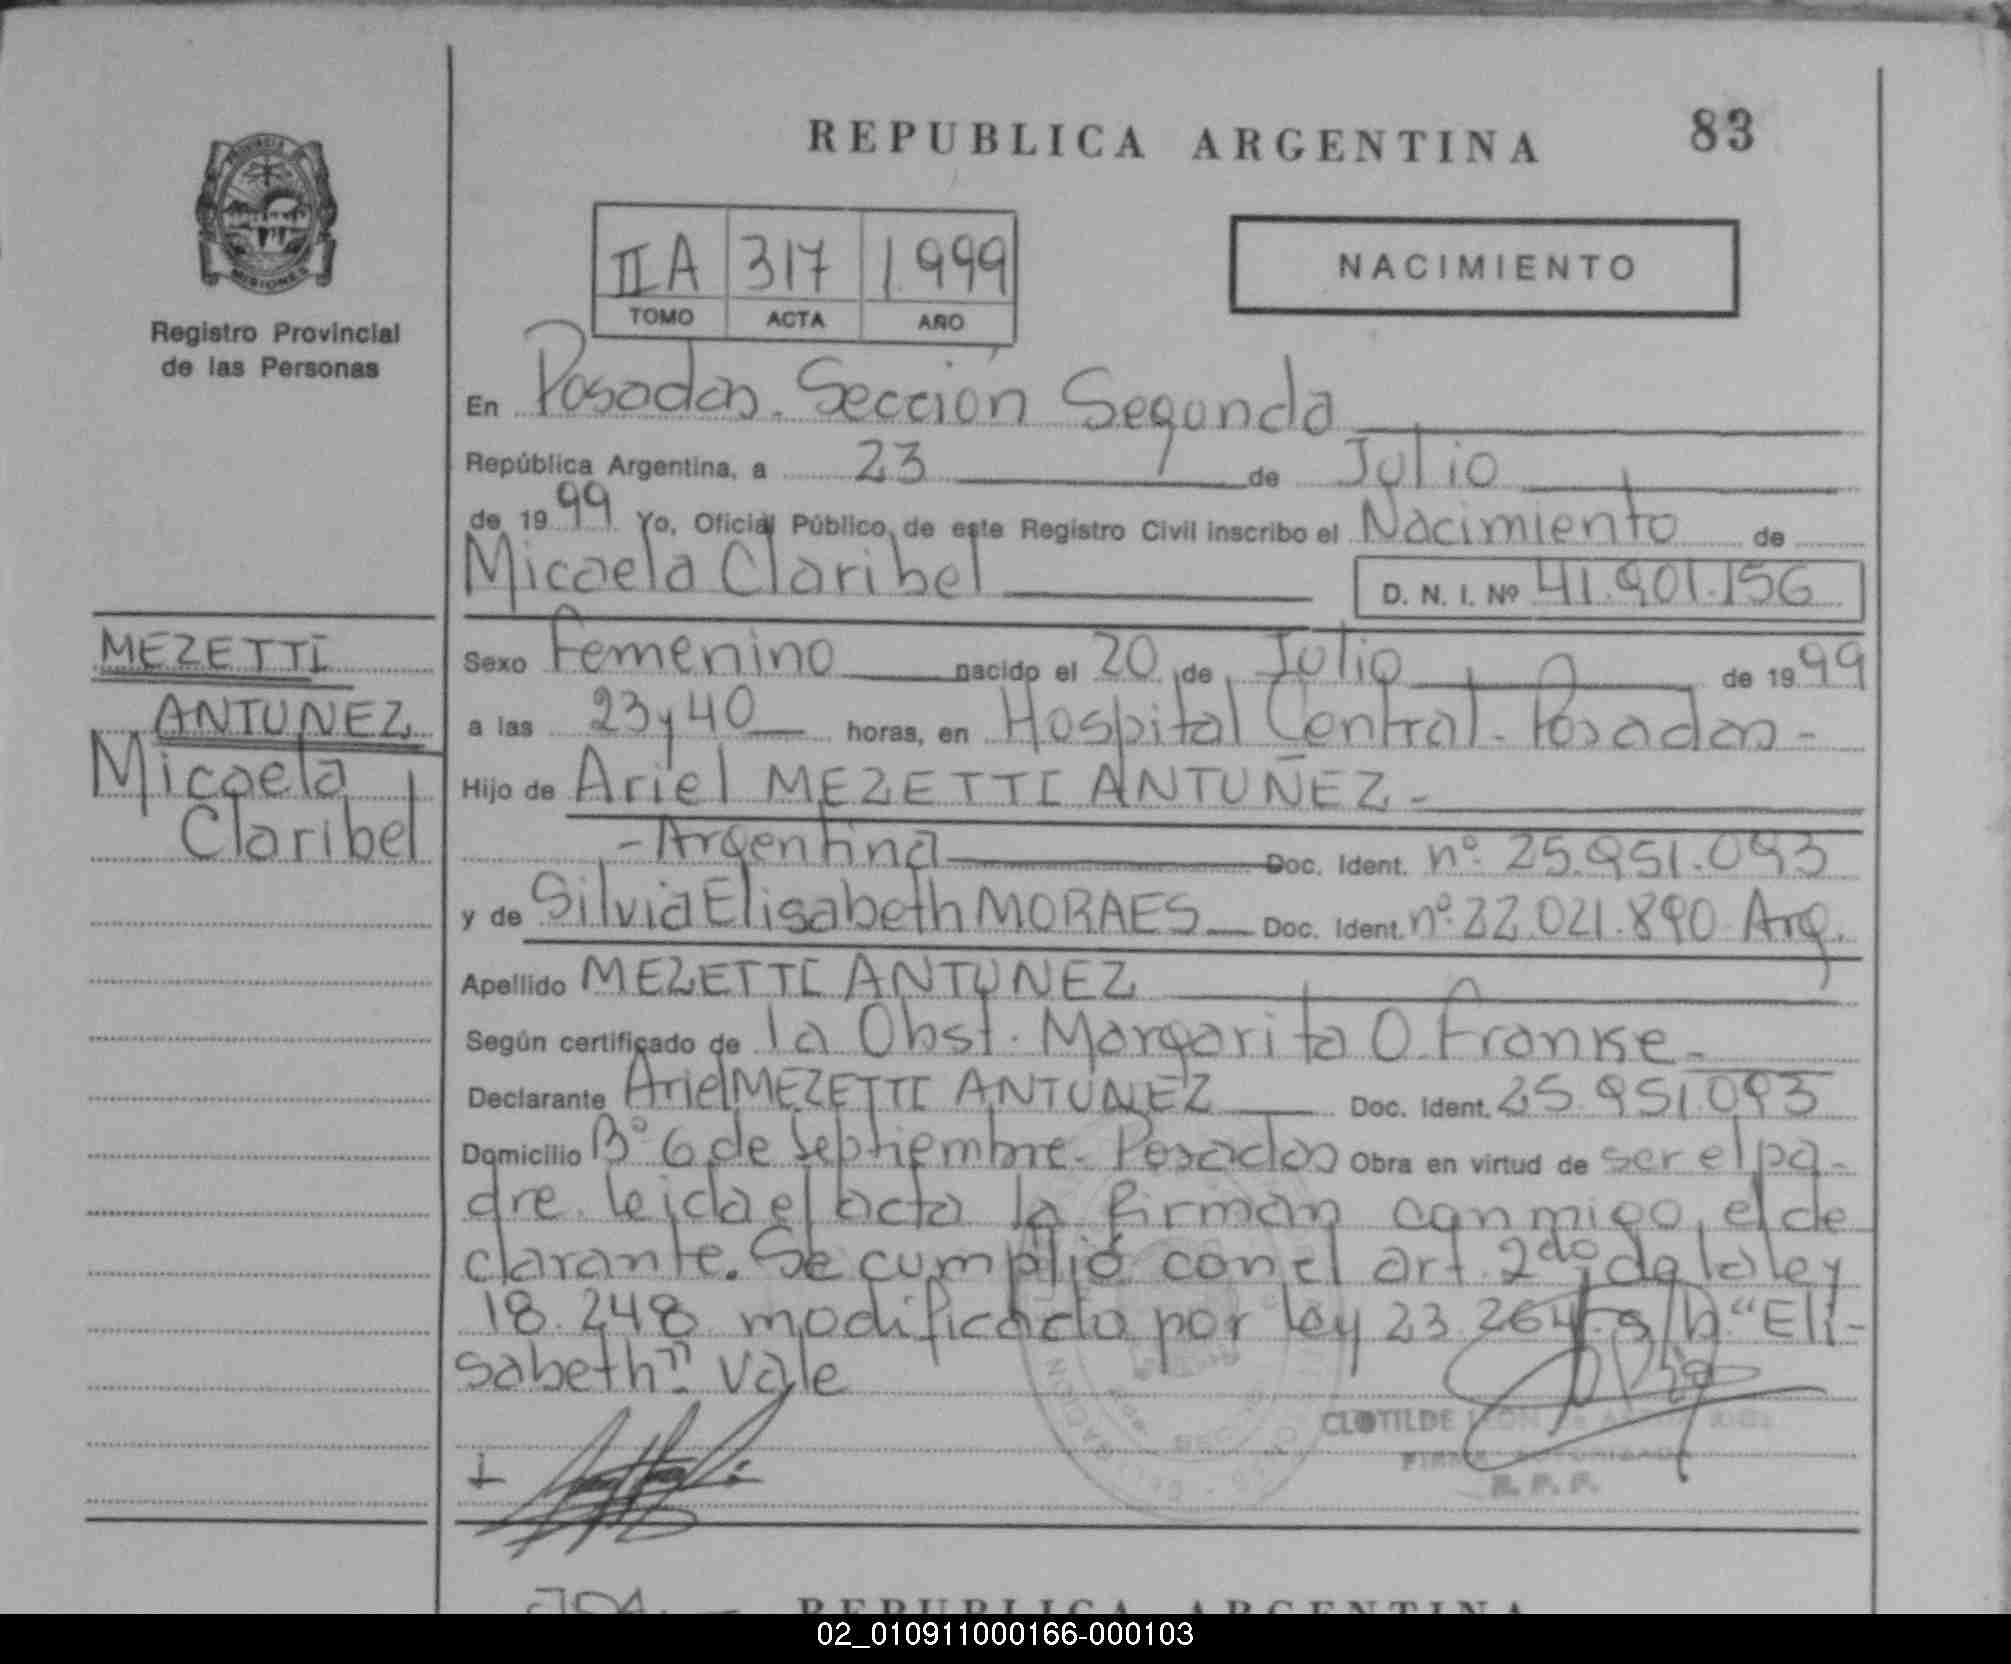 REPUBLICA ARGENTINA
83
PROVINCIA DE
MISIONES
Registro Provincial
de las Personas
II A 317 1.999
TOMO ACTA AÑO
NACIMIENTO
En Posadas. Sección Segunda
República Argentina, a 23 de Julio
de 1999 Yo, Oficial Público, de este Registro Civil inscribo el Nacimiento de
Micaela Claribel D. N. I. Nº 41.901.156
MEZETTI
ANTUNEZ
Micaela
Claribel
Sexo Femenino nacido el 20 de Julio de 1999
a las 23 y 40 horas, en Hospital Central - Posadas -
Hijo de Ariel MEZETTI ANTUÑEZ -
- Argentina Doc. Ident. nº 25.951.093
y de Silvia Elisabeth MORAES Doc. Ident. nº 22.021.890 Arg.
Apellido MEZETTI ANTUNEZ
Según certificado de la Obst. Margarita O. Franke -
Declarante Ariel MEZETTI ANTUNEZ Doc. Ident. 25.951.093
Domicilio Bº 6 de Septiembre - Posadas Obra en virtud de ser el pa-
dre. leida el acta la firman conmigo, el de
clarante. Se cumplió con el art. 2do de la ley
18.248 modificada por ley 23.264. s/b. "Eli-
sabeth". Vale
CLOTILDE LEON
FIRMA AUTORIZADA
R. P. P.
REPUBLICA ARGENTINA
02_010911000166-000103